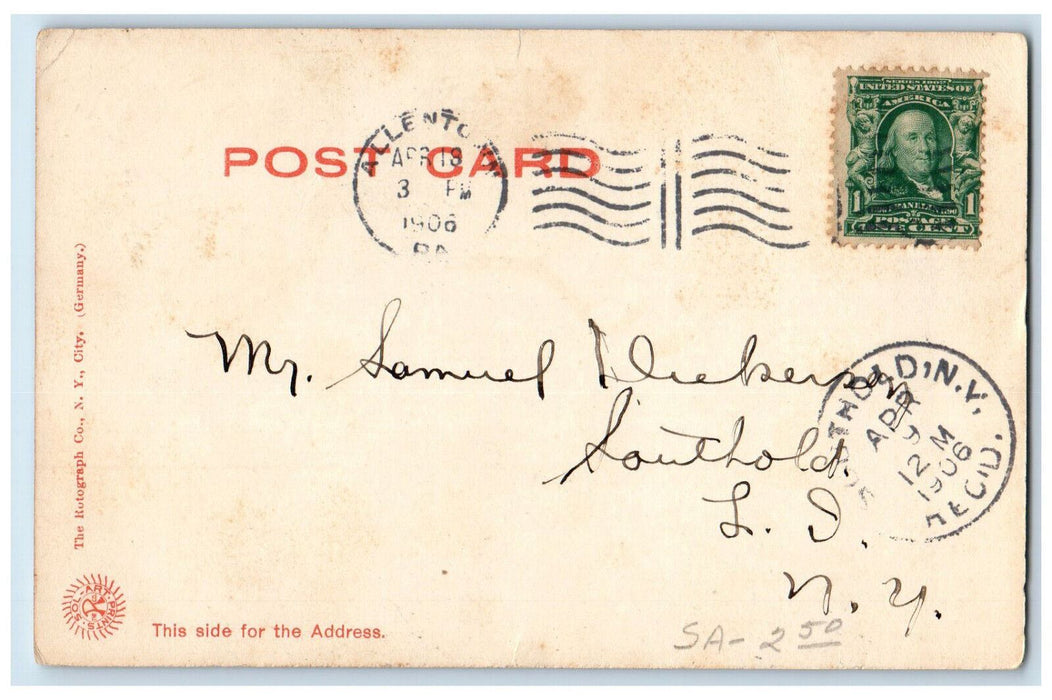 SERIES 1902
UNITED STATES OF
AMERICA
1 1
POSTAGE
ONE CENT
POST CARD
ALLENTOWN
APR 18
3 PM
1906
PA
Mr. Samuel Dickerson
Southold.
L. I.
N. Y.
SOUTHOLD, N.Y.
APR
19
12 M
1906
REC'D.
The Rotograph Co., N. Y., City. (Germany.)
SOL-ART-PRINTS
This side for the Address.
SA- 2 50